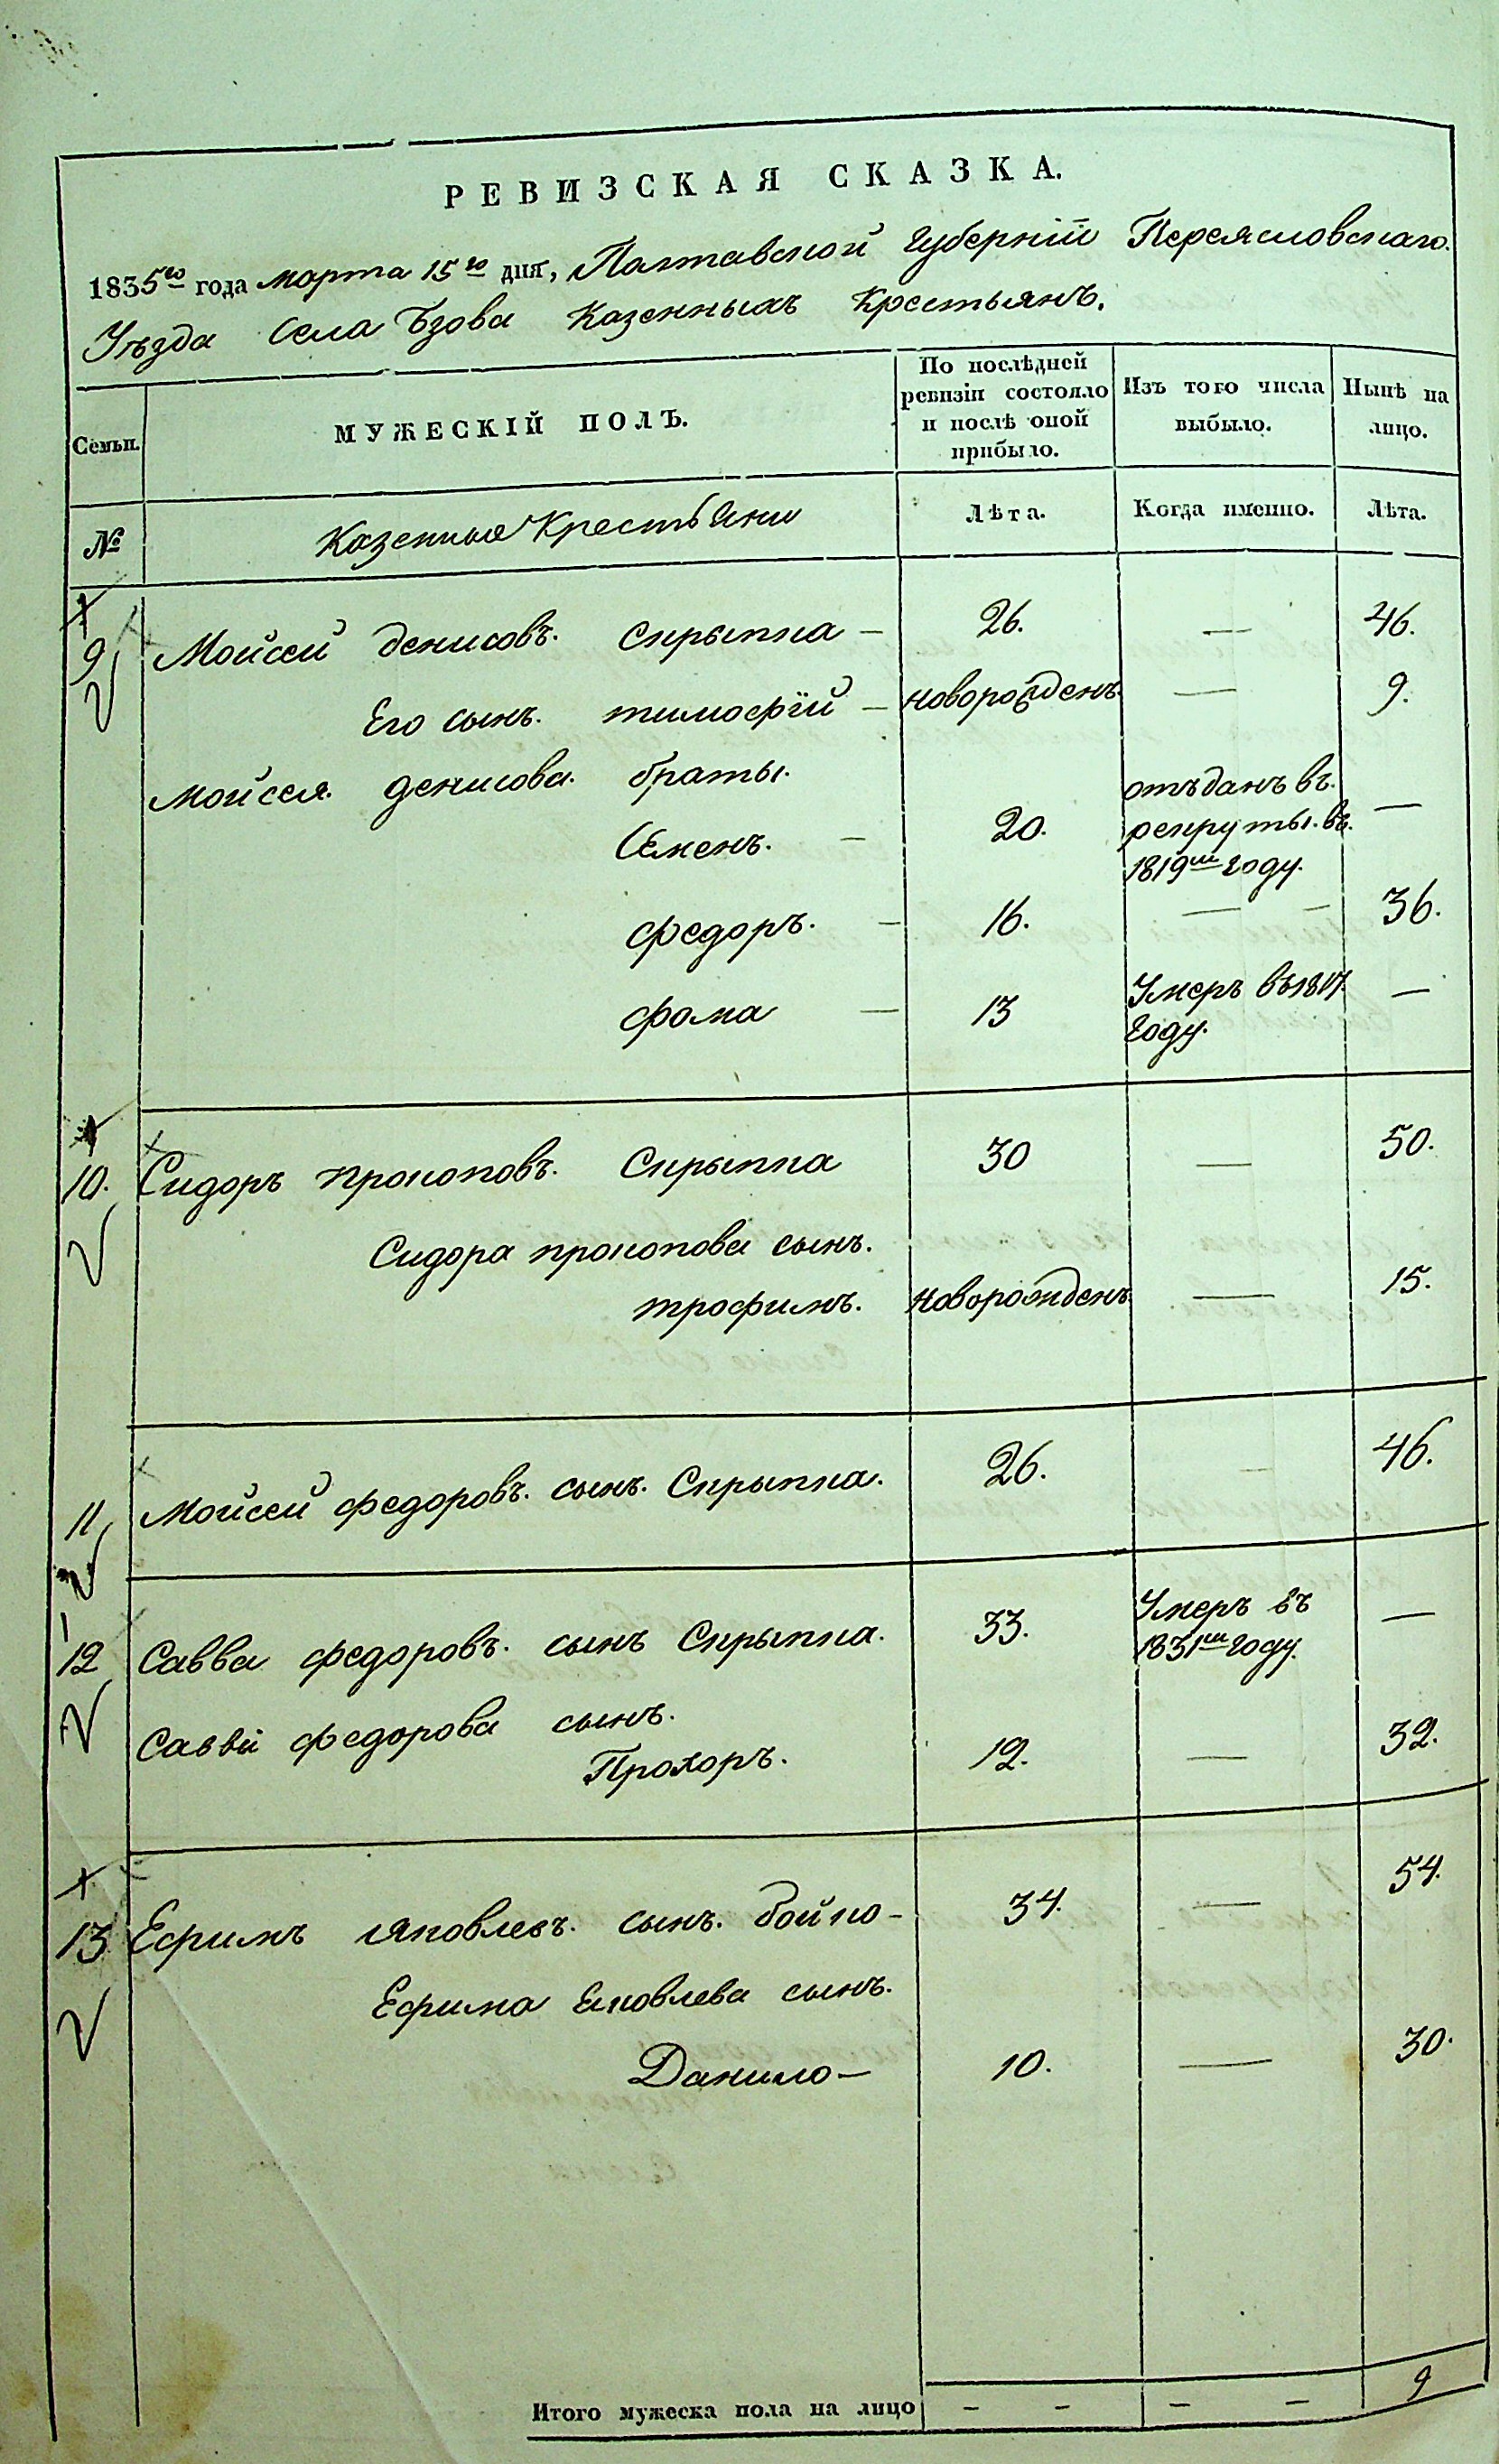 РЕВИЗСКАЯ СКАЗКА.
1835го года марта 15го дня, Полтавской Губерніи Переясловскаго.
Уѣзда Села Бзова Казенныхъ Крестьянъ.
Семьи.
МУЖЕСКІЙ ПОЛЪ.
По послѣдней ревизіи состояло и послѣ оной прибыло.
Изъ того числа выбыло.
Нынѣ на лицо.
№
Казенные Крестьяни
Лѣта.
Когда именно.
Лѣта.
9 Мойсей денисовъ. скрыпка — 26. — 46.
Его сынъ. тимофій — новорожденъ — 9.
Мойсея денисова. браты.
Семенъ. — 20. отъданъ въ. рекруты. въ. 1819м году. —
федоръ. — 16. — — 36.
фома — 13 Умеръ въ 1817. году. —
10. Сидоръ прокоповъ. Скрыпка 30 — 50.
Сидора прокопова сынъ.
трофимъ. новорожденъ — 15.
11 Мойсей федоровъ. сынъ. Скрыпка. 26. — 46.
12 Савва федоровъ. сынъ Скрыпка. 33. Умеръ въ 1831м году. —
Саввы федорова сынъ.
Прохоръ. 12. — 32.
13 Ефимъ яковлевъ. сынъ. бойко — 34. — 54.
Ефима Яковлева сынъ.
Данило — 10. — 30.
Итого мужеска пола на лицо — — — — 9